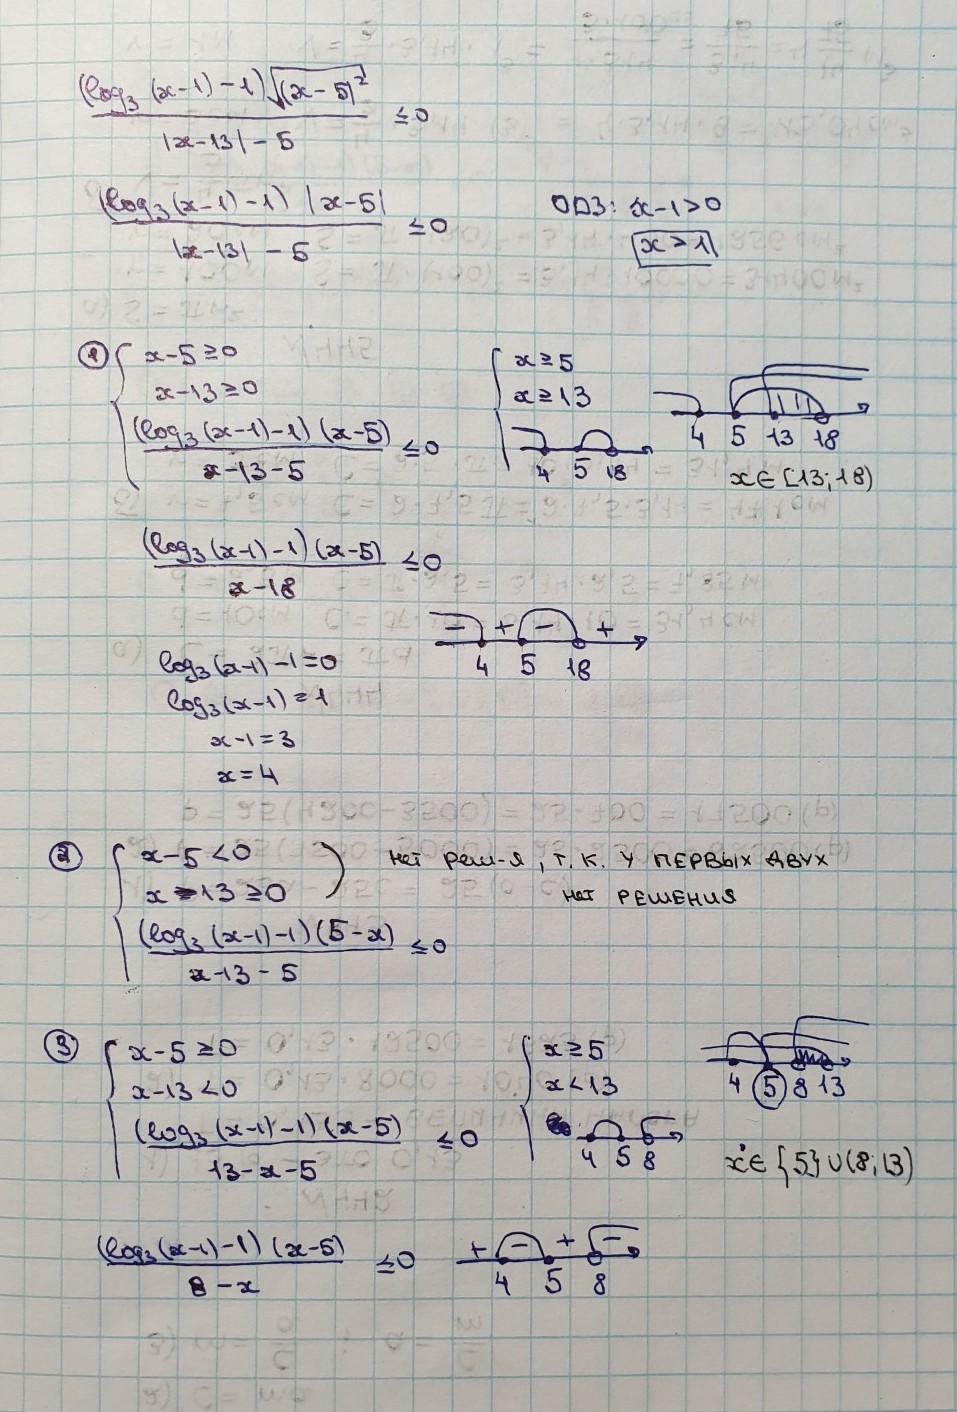 (log₃(x-1)-1)√(x-5)² / |x-13|-5 ≤0
(log₃(x-1)-1)|x-5| / |x-13|-5 ≤0
ОДЗ: x-1>0
x>1
① { x-5≥0
x-13≥0
(log₃(x-1)-1)(x-5) / x-13-5 ≤0
{ x≥5
x≥13
4 5 18
4 5 13 18
x∈[13;18)
(log₃(x-1)-1)(x-5) / x-18 ≤0
- + - +
4 5 18
log₃(x-1)-1=0
log₃(x-1)=1
x-1=3
x=4
② { x-5<0
x-13≥0
) нет реш-я, т.к. у первых двух
нет решения
(log₃(x-1)-1)(5-x) / x-13-5 ≤0
③ { x-5≥0
x-13<0
(log₃(x-1)-1)(x-5) / 13-x-5 ≤0
{ x≥5
x<13
4 5 8
4 5 8 13
x∈{5}∪(8;13)
(log₃(x-1)-1)(x-5) / 8-x ≤0
+ - + -
4 5 8